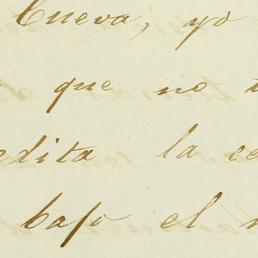 Cueva, yo
que no
edita la ce
bajo el